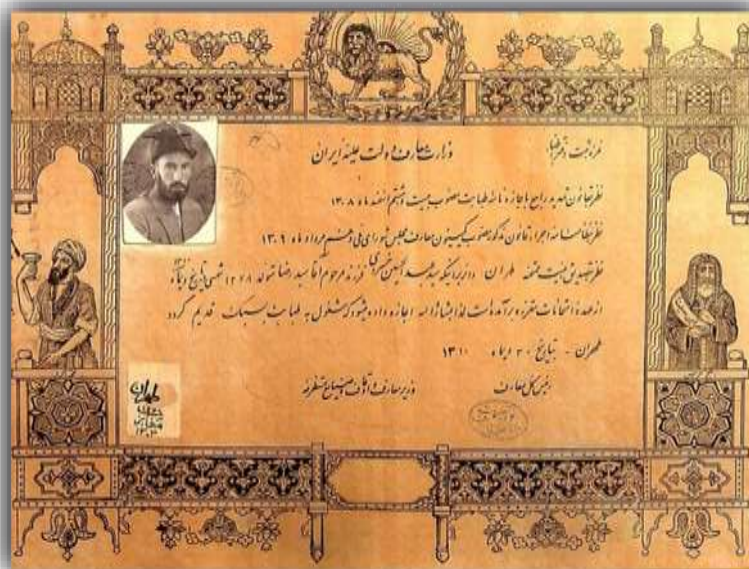 نمره ثبت دفتر اطباء
وزارت معارف دولت علیه ایران
نظر بقانون تمدید راجع باجازه نامه طبابت مصوب بیست و هشتم اسفند ماه ۱۳۰۸
نظر بنظامنامه اجراء قانون مذکور مصوب کمیسیون معارف مجلس شورای ملی و هشتم مرداد ماه ۱۳۰۹
نظر بتصدیق هیئت ممتحنه طهران دایر براینکه سید عبدالحسین فرزند مرحوم آقا سید رضا متولد ۱۲۷۸ شمسی تاریخ دیماه ۱۳۱۰
از عهده امتحانات مقرره برآمده است لذا بمشارالیه اجازه داده میشود که مشغول به طبابت بسبک قدیم گردد
طهران - بتاریخ ۳۰ دیماه ۱۳۱۰
رئیس کل معارف
وزیر معارف و اوقاف و صنایع مستظرفه
طهران